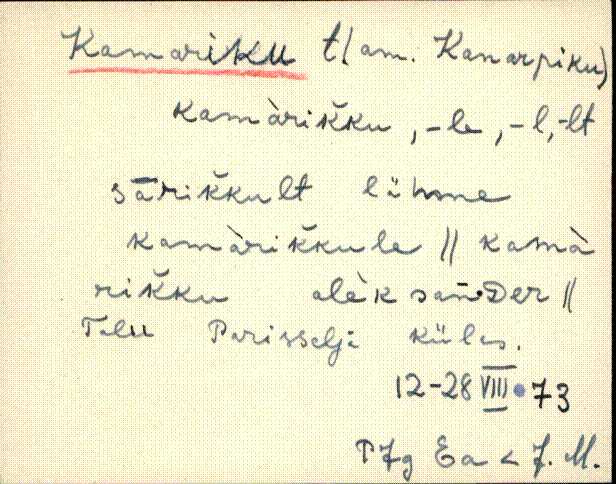 Kamariku t(am. Kanarpiku)
kamàriǩku, -le, -l, -lt
sāriǩkult lähme
kamàriǩkule || kamà
riǩku alèksander ||
Talu Parisselja külas.
12-28 VIII 73
PJg Ea < J. M.